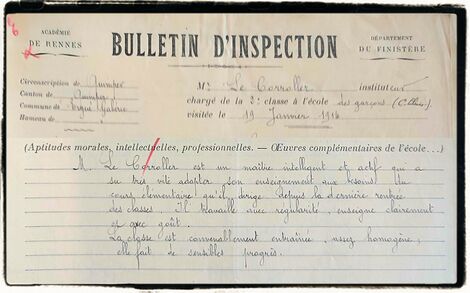 ACADÉMIE
DE RENNES
BULLETIN D'INSPECTION
DÉPARTEMENT
DU FINISTÈRE
Circonscription de Quimper
Canton de Quimper
Commune de Ergué Gabéric
Hameau de
M. Le Corroller instituteur
chargé de la 3e classe à l'école des garçons
visitée le 19 Janvier 1914
(Aptitudes morales, intellectuelles, professionnelles. — Œuvres complémentaires de l'école...)
M. Le Corroller est un maître intelligent et actif qui a
su très vite adapter son enseignement aux besoins du
cours élémentaire qu'il dirige depuis la dernière rentrée
des classes. Il travaille avec régularité, enseigne clairement
et avec goût.
La classe est convenablement entraînée, assez homogène ;
elle fait de sensibles progrès.